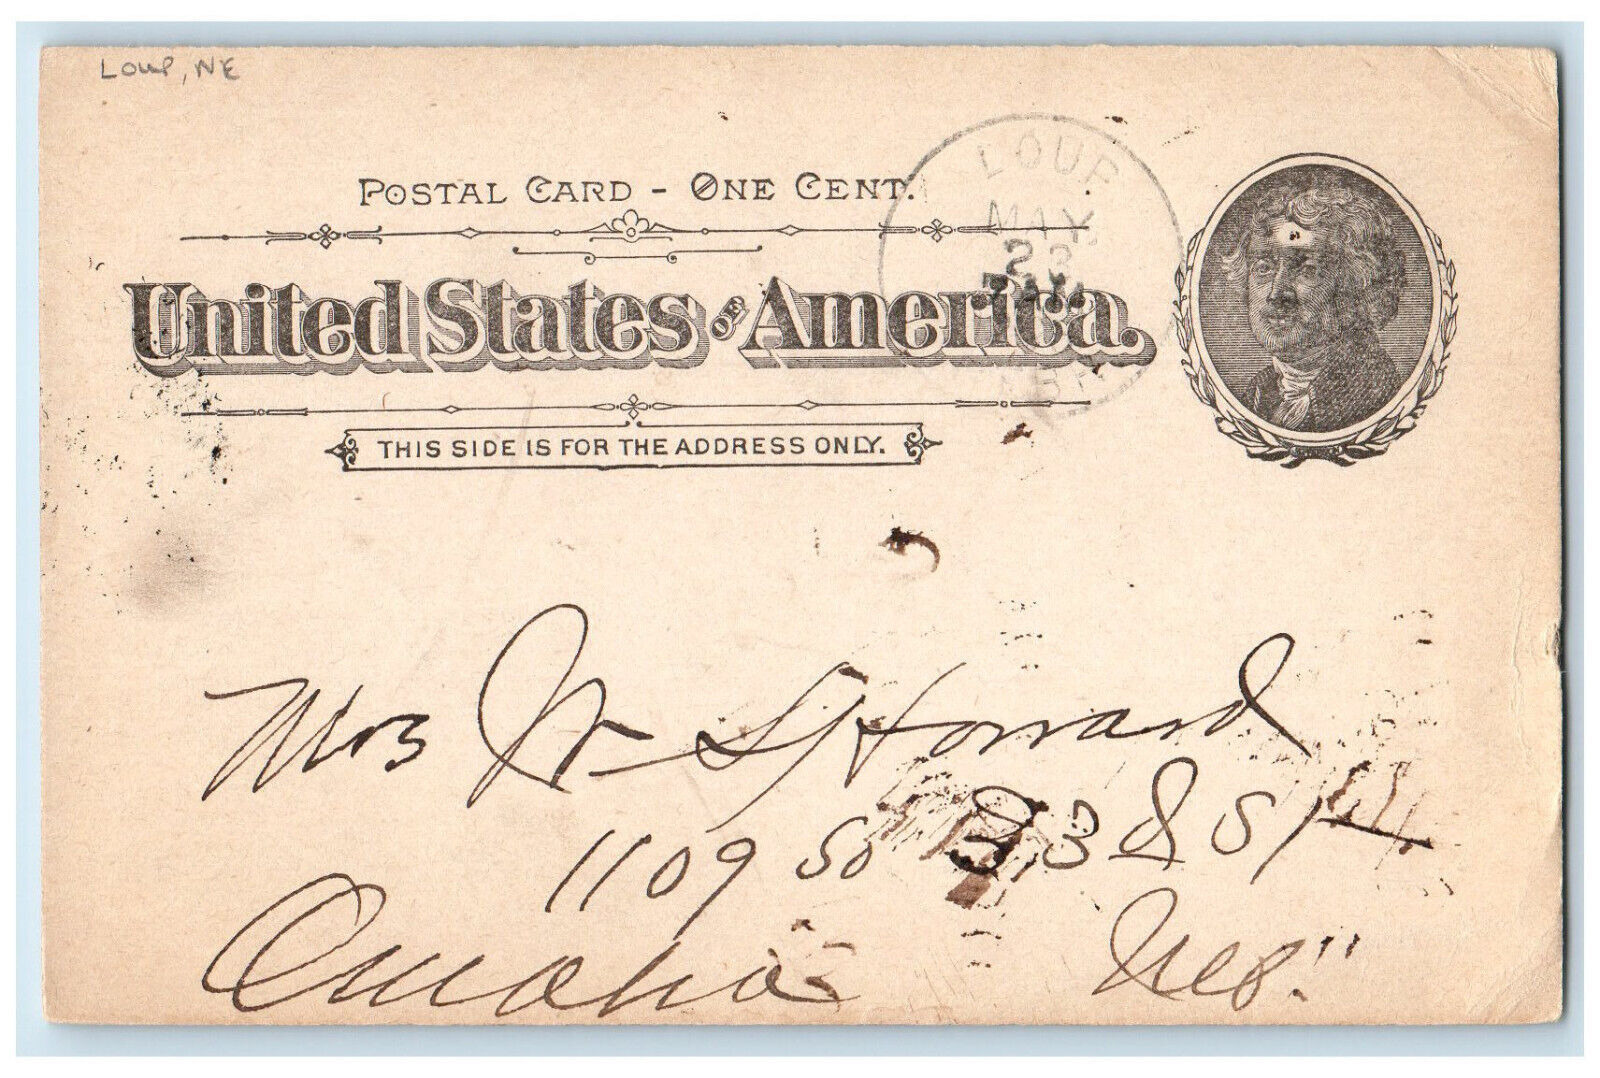 Loup, NE
POSTAL CARD - ONE CENT.
LOUP
MAY
23
7AM
United States OF America.
THIS SIDE IS FOR THE ADDRESS ONLY.
Mrs W S Howard
1109 So 23d St
Omaha Neb.